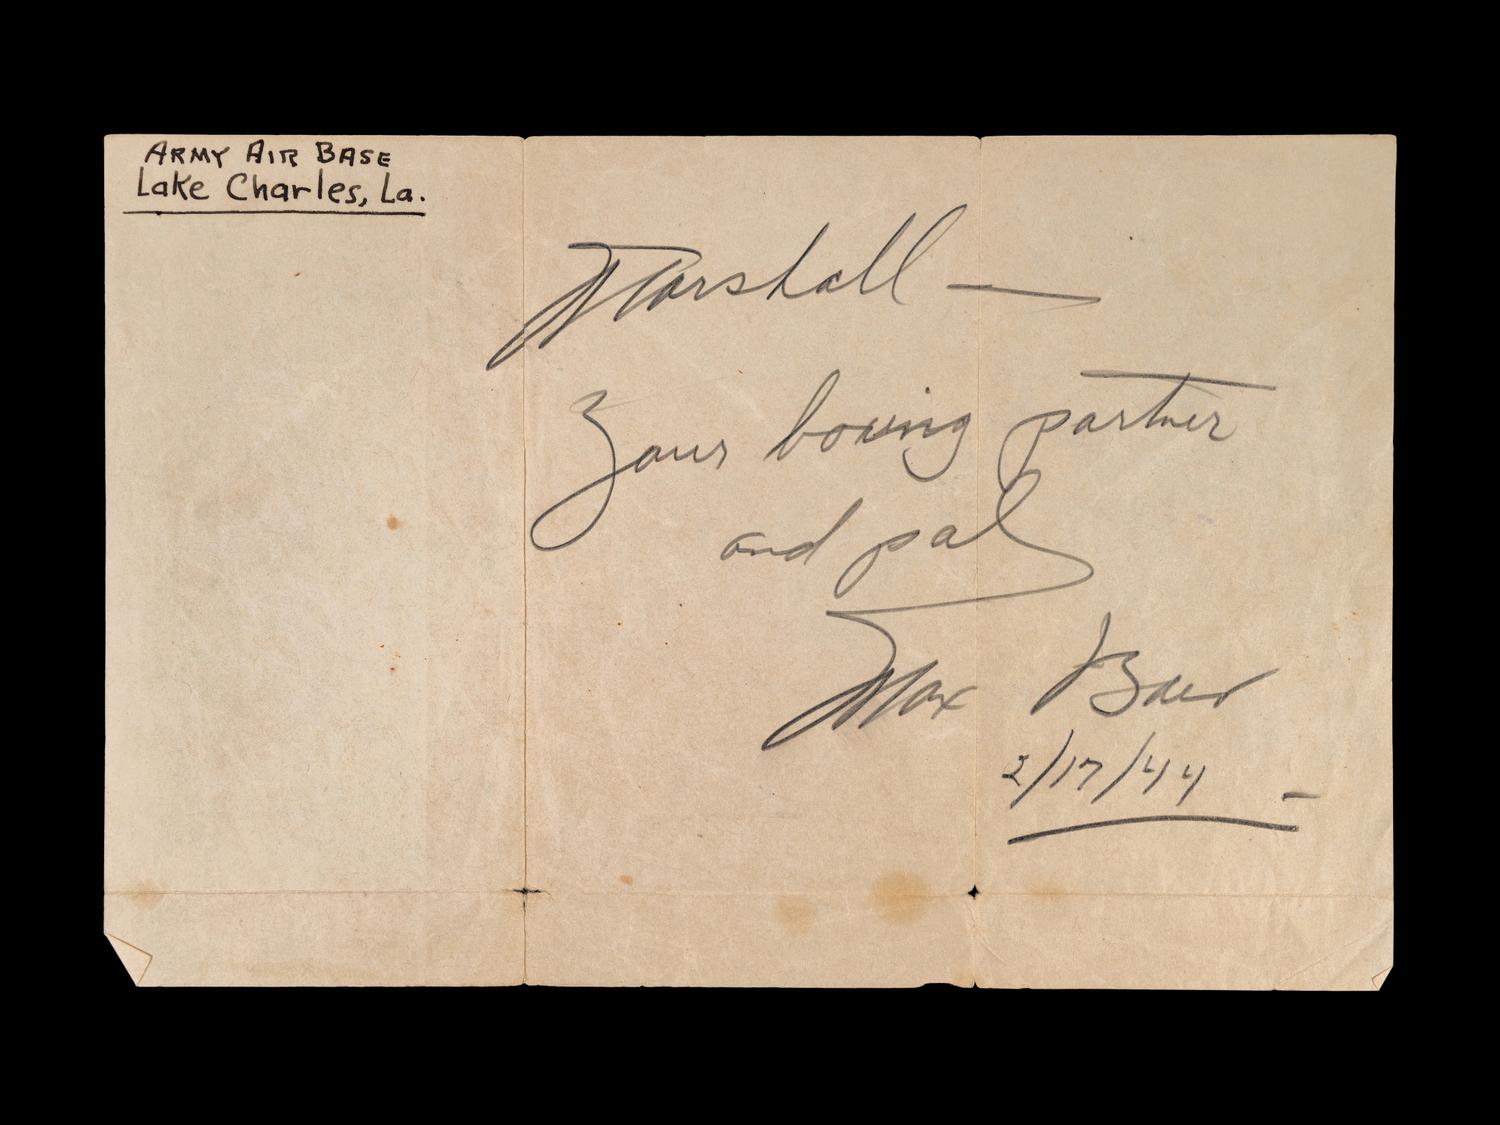 ARMY AIR BASE
Lake Charles, La.
Marshall —
Your boxing partner
and pal
Max Baer
2/17/44 —